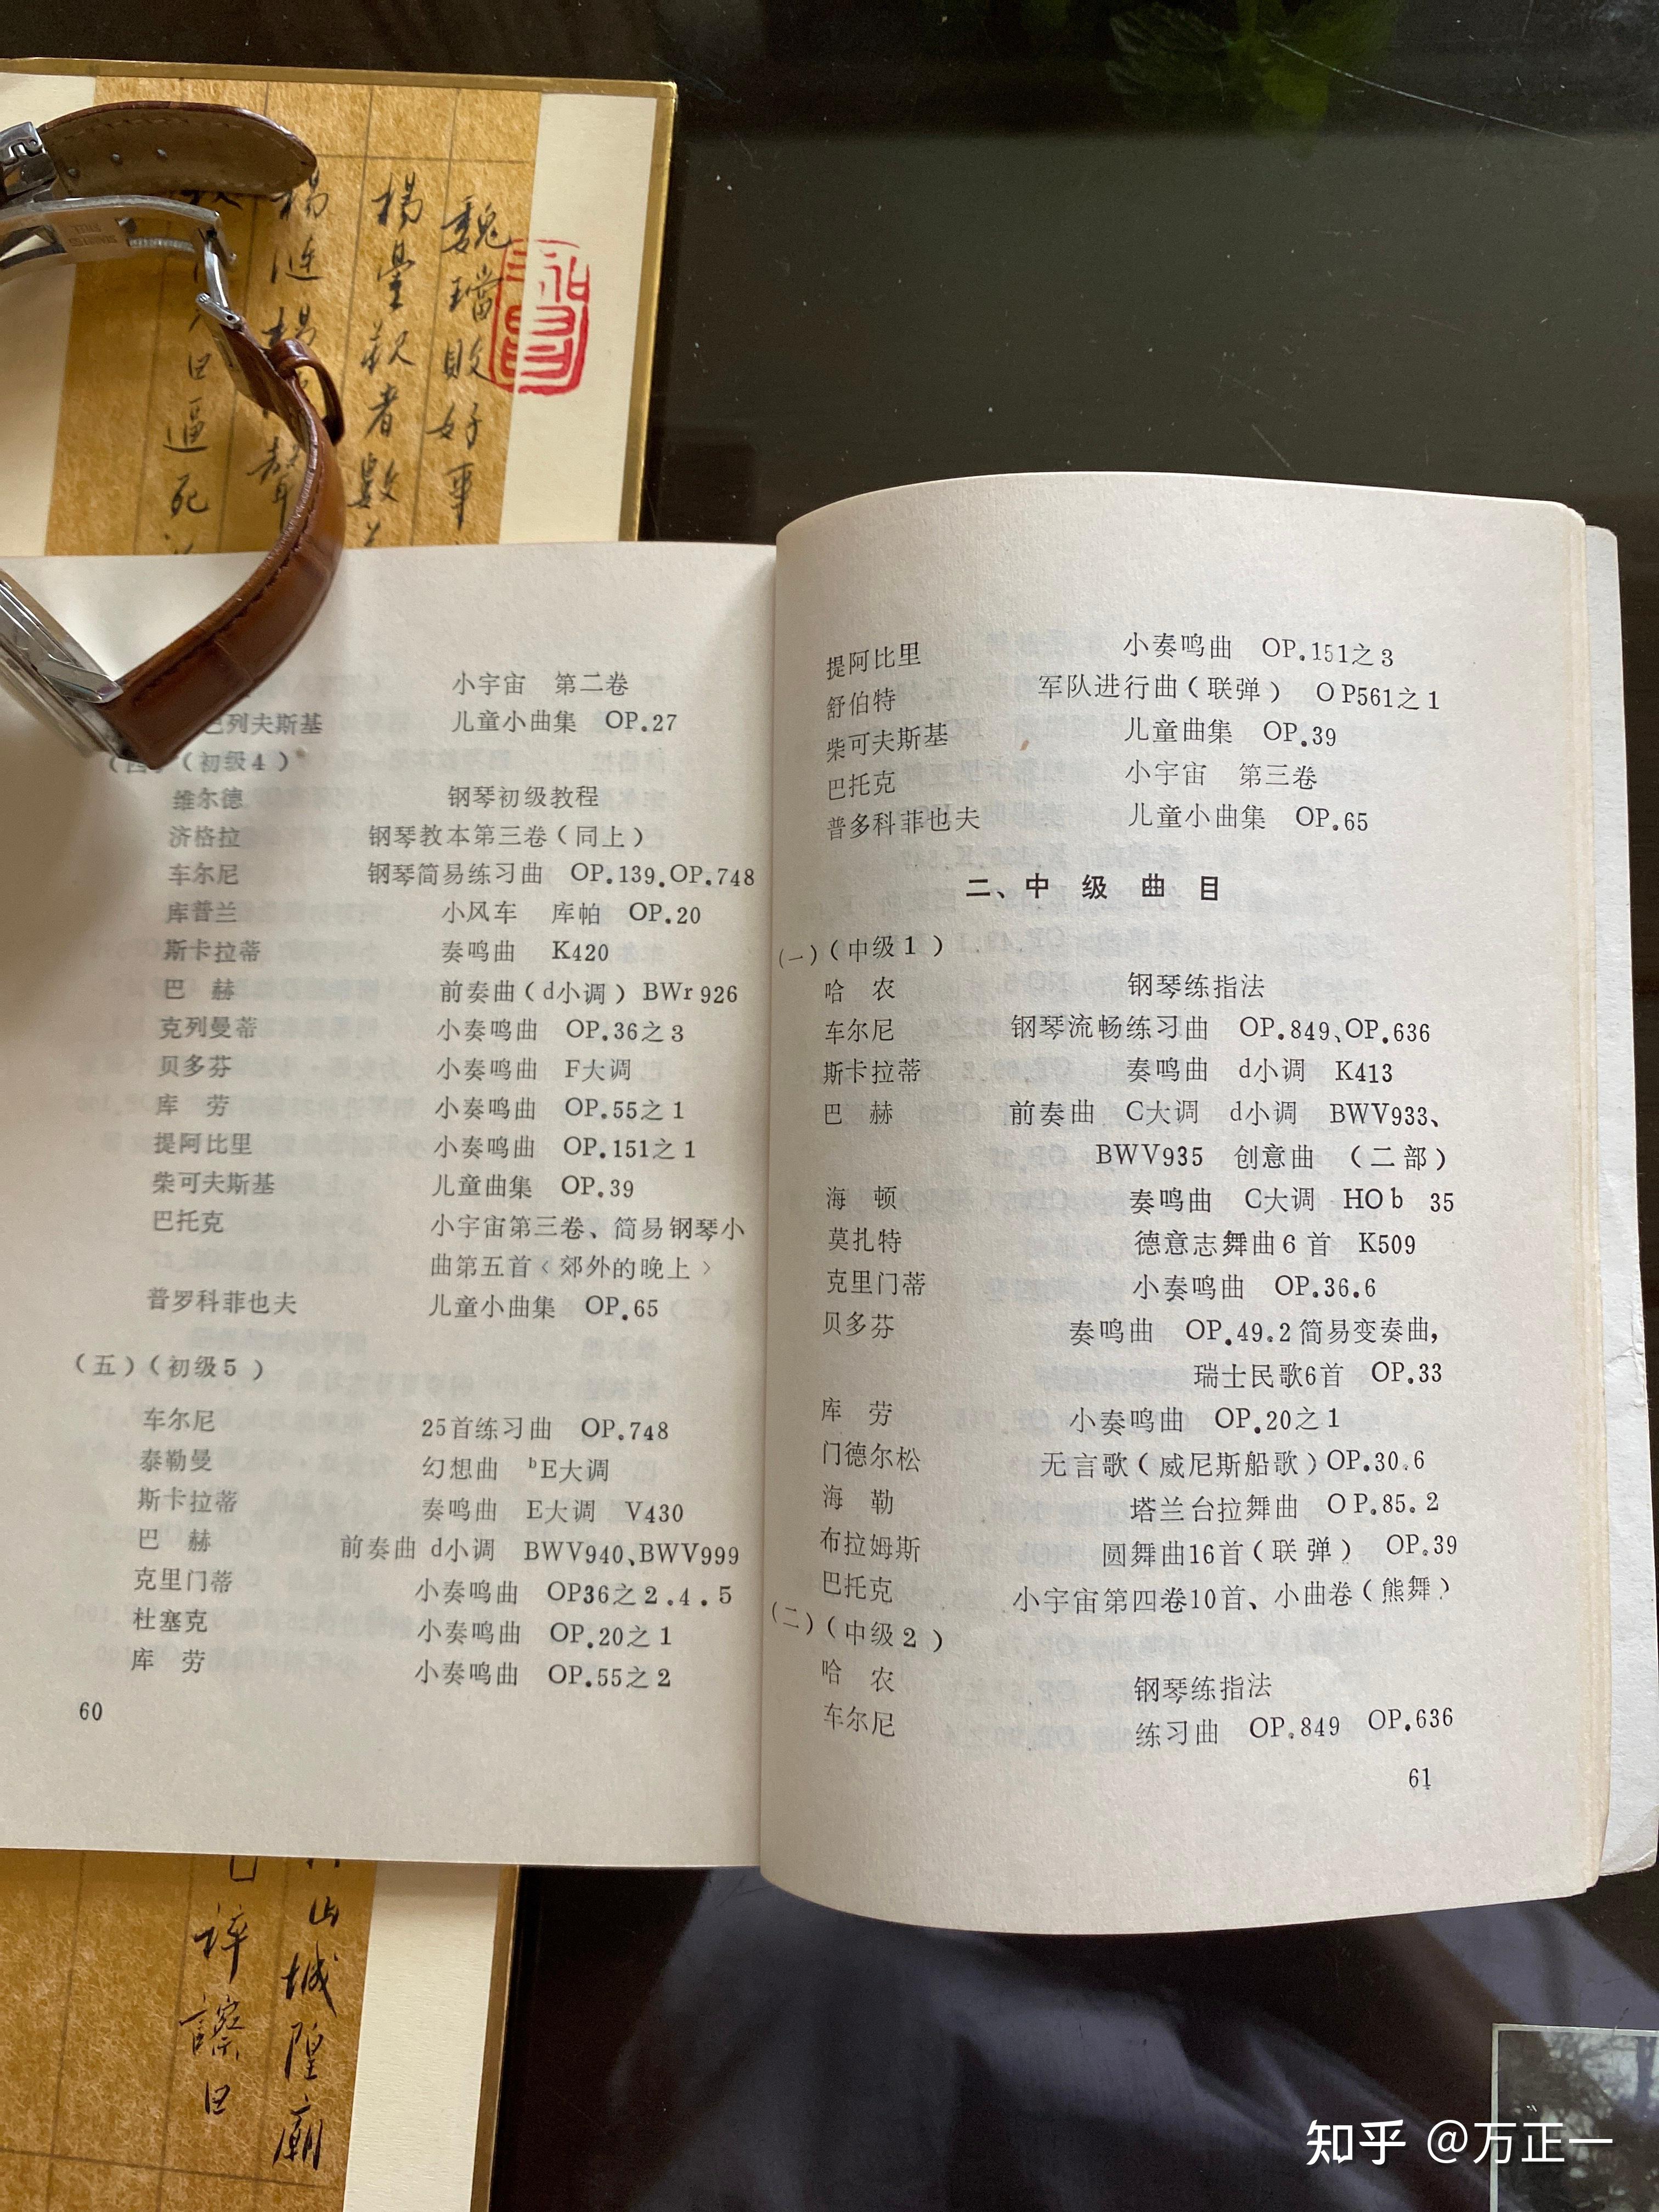 魏璫敗好事
楊臺歘者數
楊漣楊
聲
曰逼死
小宇宙 第二卷
巴列夫斯基 儿童小曲集 OP.27
(四)(初级4)
维尔德 钢琴初级教程
济格拉 钢琴教本第三卷(同上)
车尔尼 钢琴简易练习曲 OP.139.OP.748
库普兰 小风车 库帕 OP.20
斯卡拉蒂 奏鸣曲 K420
巴 赫 前奏曲(d小调) BWr 926
克列曼蒂 小奏鸣曲 OP.36之3
贝多芬 小奏鸣曲 F大调
库 劳 小奏鸣曲 OP.55之1
提阿比里 小奏鸣曲 OP.151之1
柴可夫斯基 儿童曲集 OP.39
巴托克 小宇宙第三卷、简易钢琴小
曲第五首〈郊外的晚上〉
普罗科菲也夫 儿童小曲集 OP.65
(五)(初级5)
车尔尼 25首练习曲 OP.748
泰勒曼 幻想曲 ᵇE大调
斯卡拉蒂 奏鸣曲 E大调 V430
巴 赫 前奏曲 d小调 BWV940、BWV999
克里门蒂 小奏鸣曲 OP36之2.4.5
杜塞克 小奏鸣曲 OP.20之1
库 劳 小奏鸣曲 OP.55之2
60
提阿比里 小奏鸣曲 OP.151之3
舒伯特 军队进行曲(联弹) OP561之1
柴可夫斯基 儿童曲集 OP.39
巴托克 小宇宙 第三卷
普多科菲也夫 儿童小曲集 OP.65
二、中级曲目
(一)(中级1)
哈 农 钢琴练指法
车尔尼 钢琴流畅练习曲 OP.849、OP.636
斯卡拉蒂 奏鸣曲 d小调 K413
巴 赫 前奏曲 C大调 d小调 BWV933、
BWV935 创意曲 (二部)
海 顿 奏鸣曲 C大调 HOb 35
莫扎特 德意志舞曲6首 K509
克里门蒂 小奏鸣曲 OP.36.6
贝多芬 奏鸣曲 OP.49.2简易变奏曲,
瑞士民歌6首 OP.33
库 劳 小奏鸣曲 OP.20之1
门德尔松 无言歌(威尼斯船歌)OP.30.6
海 勒 塔兰台拉舞曲 OP.85.2
布拉姆斯 圆舞曲16首(联弹) OP.39
巴托克 小宇宙第四卷10首、小曲卷(熊舞)
(二)(中级2)
哈 农 钢琴练指法
车尔尼 练习曲 OP.849 OP.636
61
山城隍廟
辞謝曰
知乎 @万正一